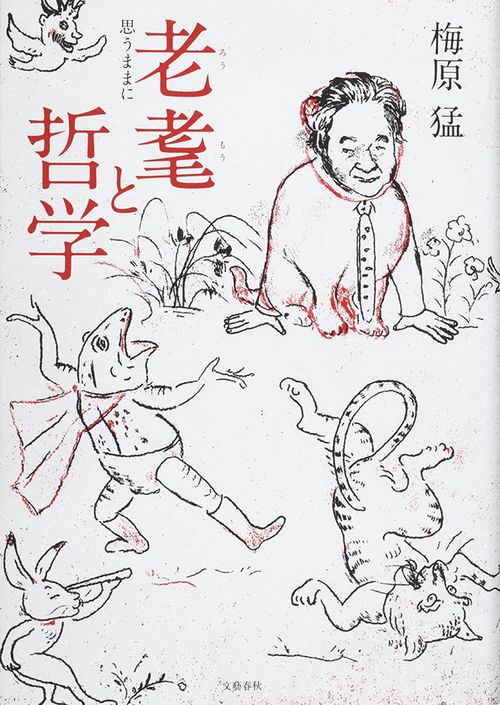 梅原 猛
老耄と哲学
ろうもう
思うままに
文藝春秋